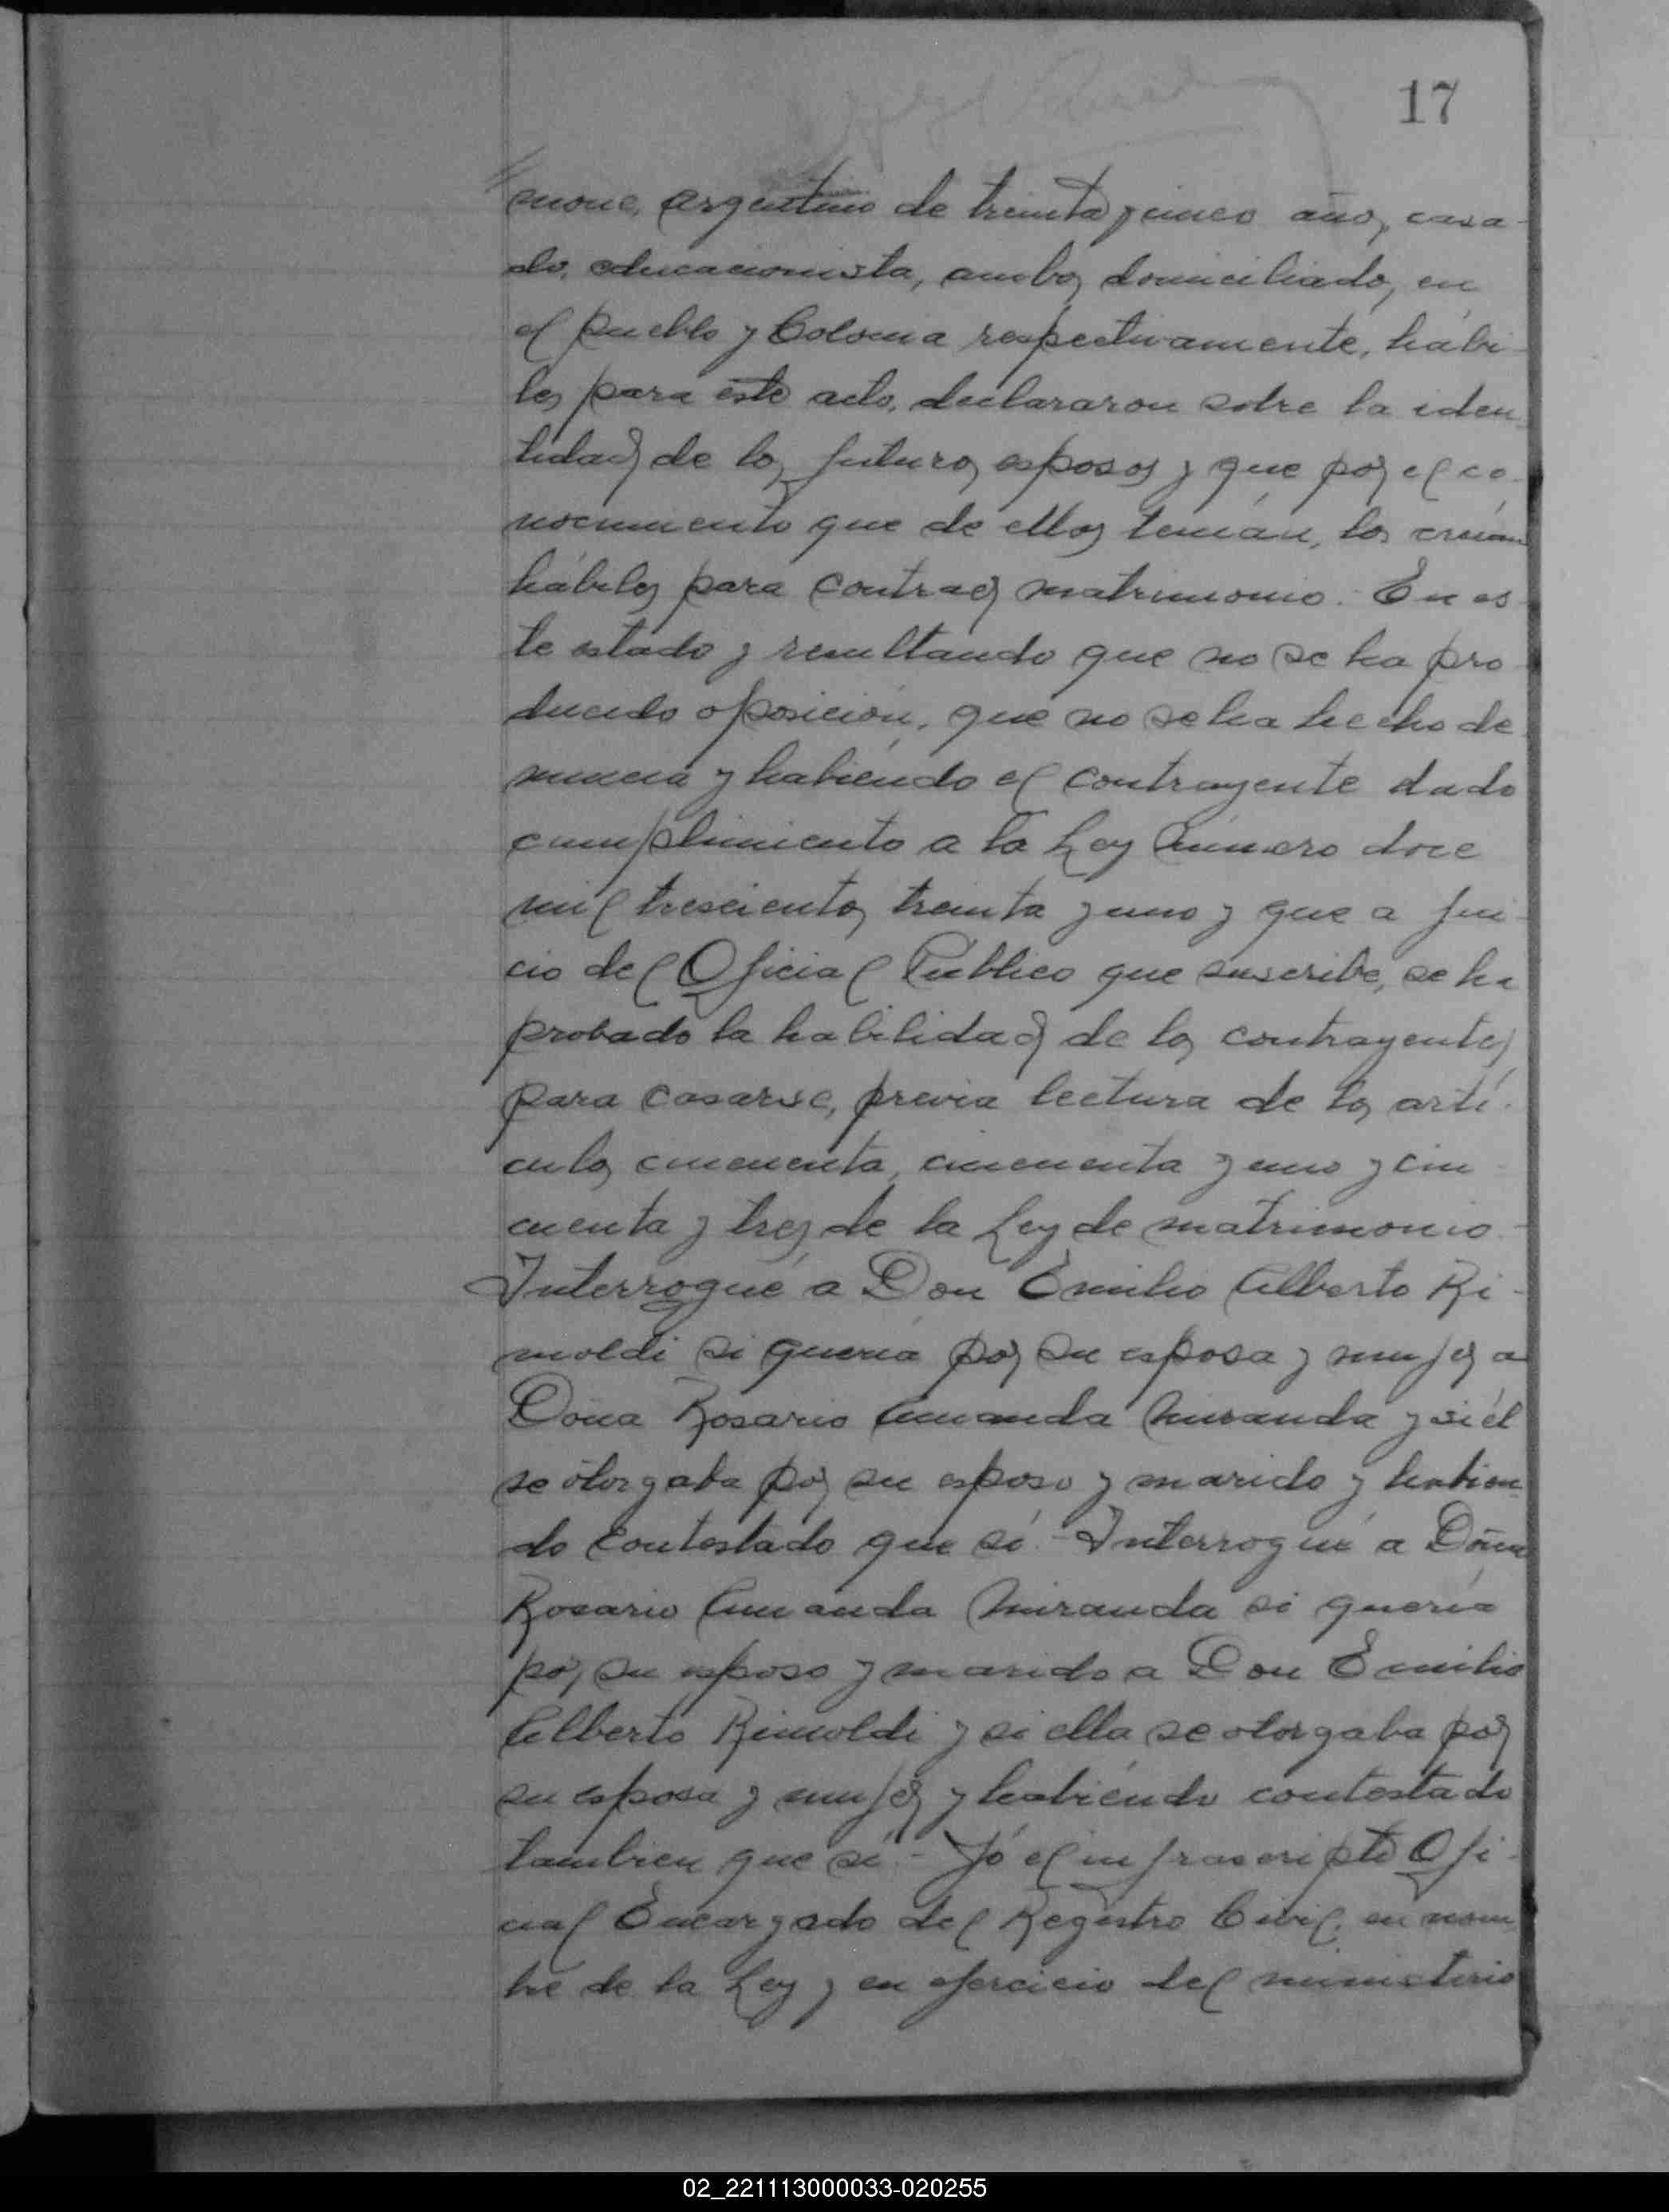 17
mone, argentino de treinta y cinco años, casa-
do, educacionista, ambos domiciliados en
el pueblo y Colonia respectivamente, hábi-
les para este acto, declararon sobre la iden-
tidad de los futuros esposos y que por el co-
nocimiento que de ellos tenían, los creían
hábiles para contraer matrimonio. En es-
te estado y resultando que no se ha pro-
ducido oposición, que no se ha hecho de-
nuncia y habiendo el contrayente dado
cumplimiento a la Ley Número doce
mil trescientos treinta y uno y que a jui-
cio del Oficial Público que suscribe, se ha
probado la habilidad de los contrayentes
para casarse, previa lectura de los artí-
culos cincuenta, cincuenta y uno y cin-
cuenta y tres de la Ley de matrimonio.-
Interrogué a Don Emilio Alberto Ri-
moldi si quería por su esposa y mujer a
Doña Rosario Amanda Miranda y si él
se otorgaba por su esposo y marido y habien-
do contestado que sí.- Interrogué a Doña
Rosario Amanda Miranda si quería
por su esposo y marido a Don Emilio
Alberto Rimoldi y si ella se otorgaba por
su esposa y mujer y habiendo contestado
tambien que sí.- Yó el infrascripto Ofi-
cial Encargado del Registro Civil, en nom-
bre de la Ley y en ejercicio del ministerio
02_221113000033-020255